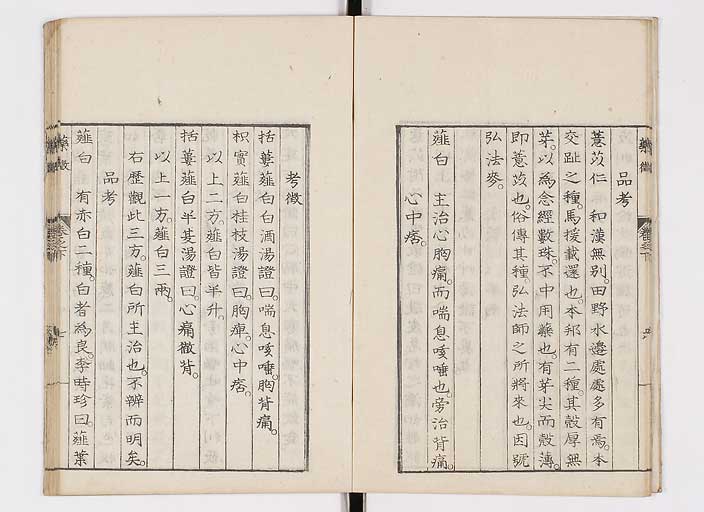 品考
薏苡仁 和漢無別。田野水邉處處多有焉。本
交趾之種。馬援載還也。本邦有二種。其殼厚無
芽。以為念經數珠。不中用藥也。有芽尖而殼薄。
即薏苡也。俗傳其種。弘法師之所將來也。因號
弘法麥。
薤白 主治心胸痛。而喘息咳唾也。旁治背痛。
心中痞。
藥徵
卷之下
考徵
括蔞薤白白酒湯證曰。喘息咳唾。胸背痛。
枳實薤白桂枝湯證曰。胸痺。心中痞。
以上二方。薤白皆半升。
括蔞薤白半夏湯證曰。心痛徹背。
以上一方。薤白三兩。
右歷觀此三方。薤白所主治也。不辨而明矣。
品考
薤白 有赤白二種。白者為良。李時珍曰。薤葉
藥徵
卷之下
七